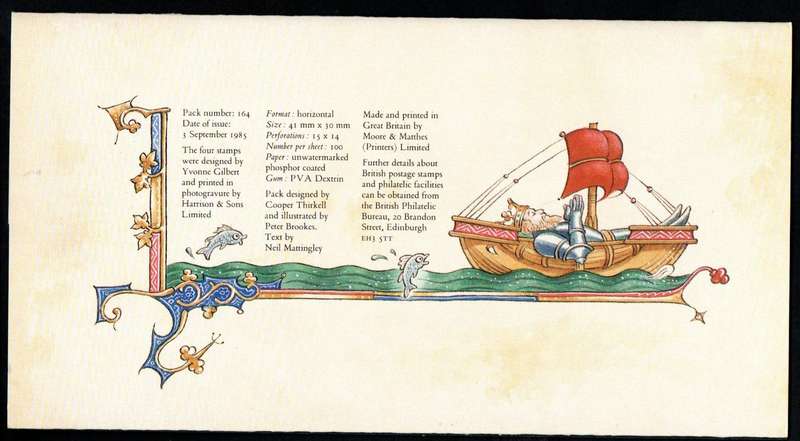 Pack number: 164
Date of issue:
3 September 1985
The four stamps
were designed by
Yvonne Gilbert
and printed in
photogravure by
Harrison & Sons
Limited
Format: horizontal
Size: 41 mm x 30 mm
Perforations: 15 x 14
Number per sheet: 100
Paper: unwatermarked
phosphor coated
Gum: PVA Dextrin
Pack designed by
Cooper Thirkell
and illustrated by
Peter Brookes.
Text by
Neil Mattingley
Made and printed in
Great Britain by
Moore & Matthes
(Printers) Limited
Further details about
British postage stamps
and philatelic facilities
can be obtained from
the British Philatelic
Bureau, 20 Brandon
Street, Edinburgh
EH3 5TT